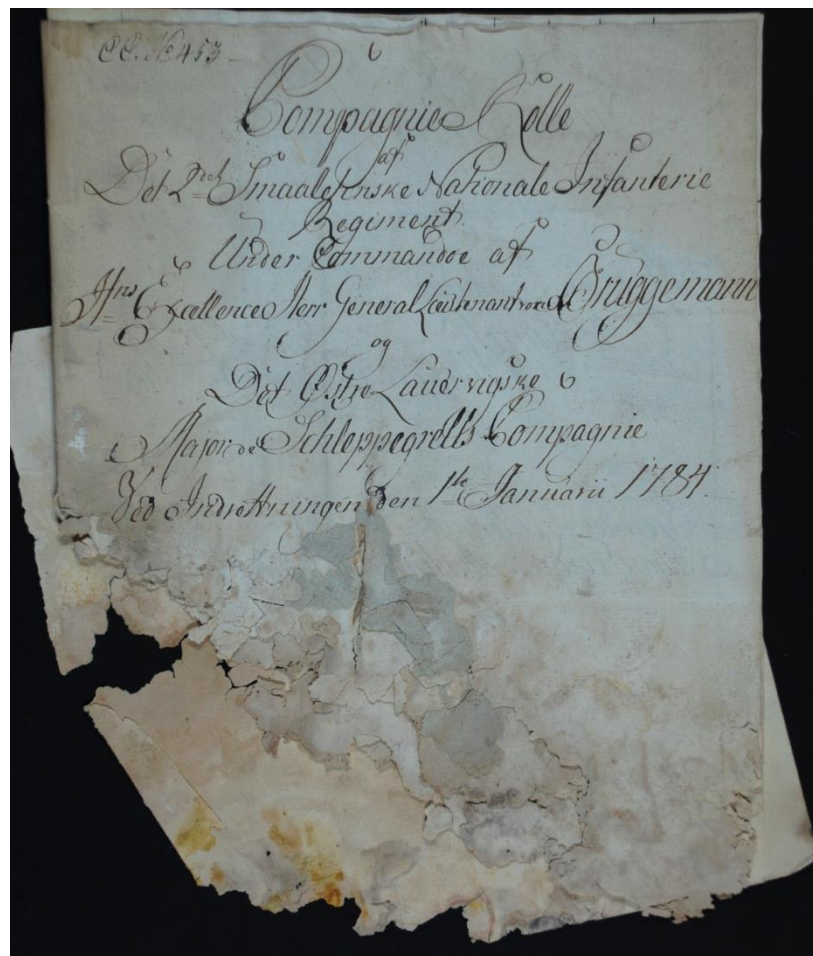 No 453
Compagnie Rolle
af
Det 2det Smaalehnske Nationale Infanterie
Regiment
Under Commandoe af
Hns Excellence Herr General Lieutenant von Brüggemann
og
Det Østre Laurvigske
Major de Schleppegrells Compagnie
Ved Indretningen den 1te Januarii 1784.